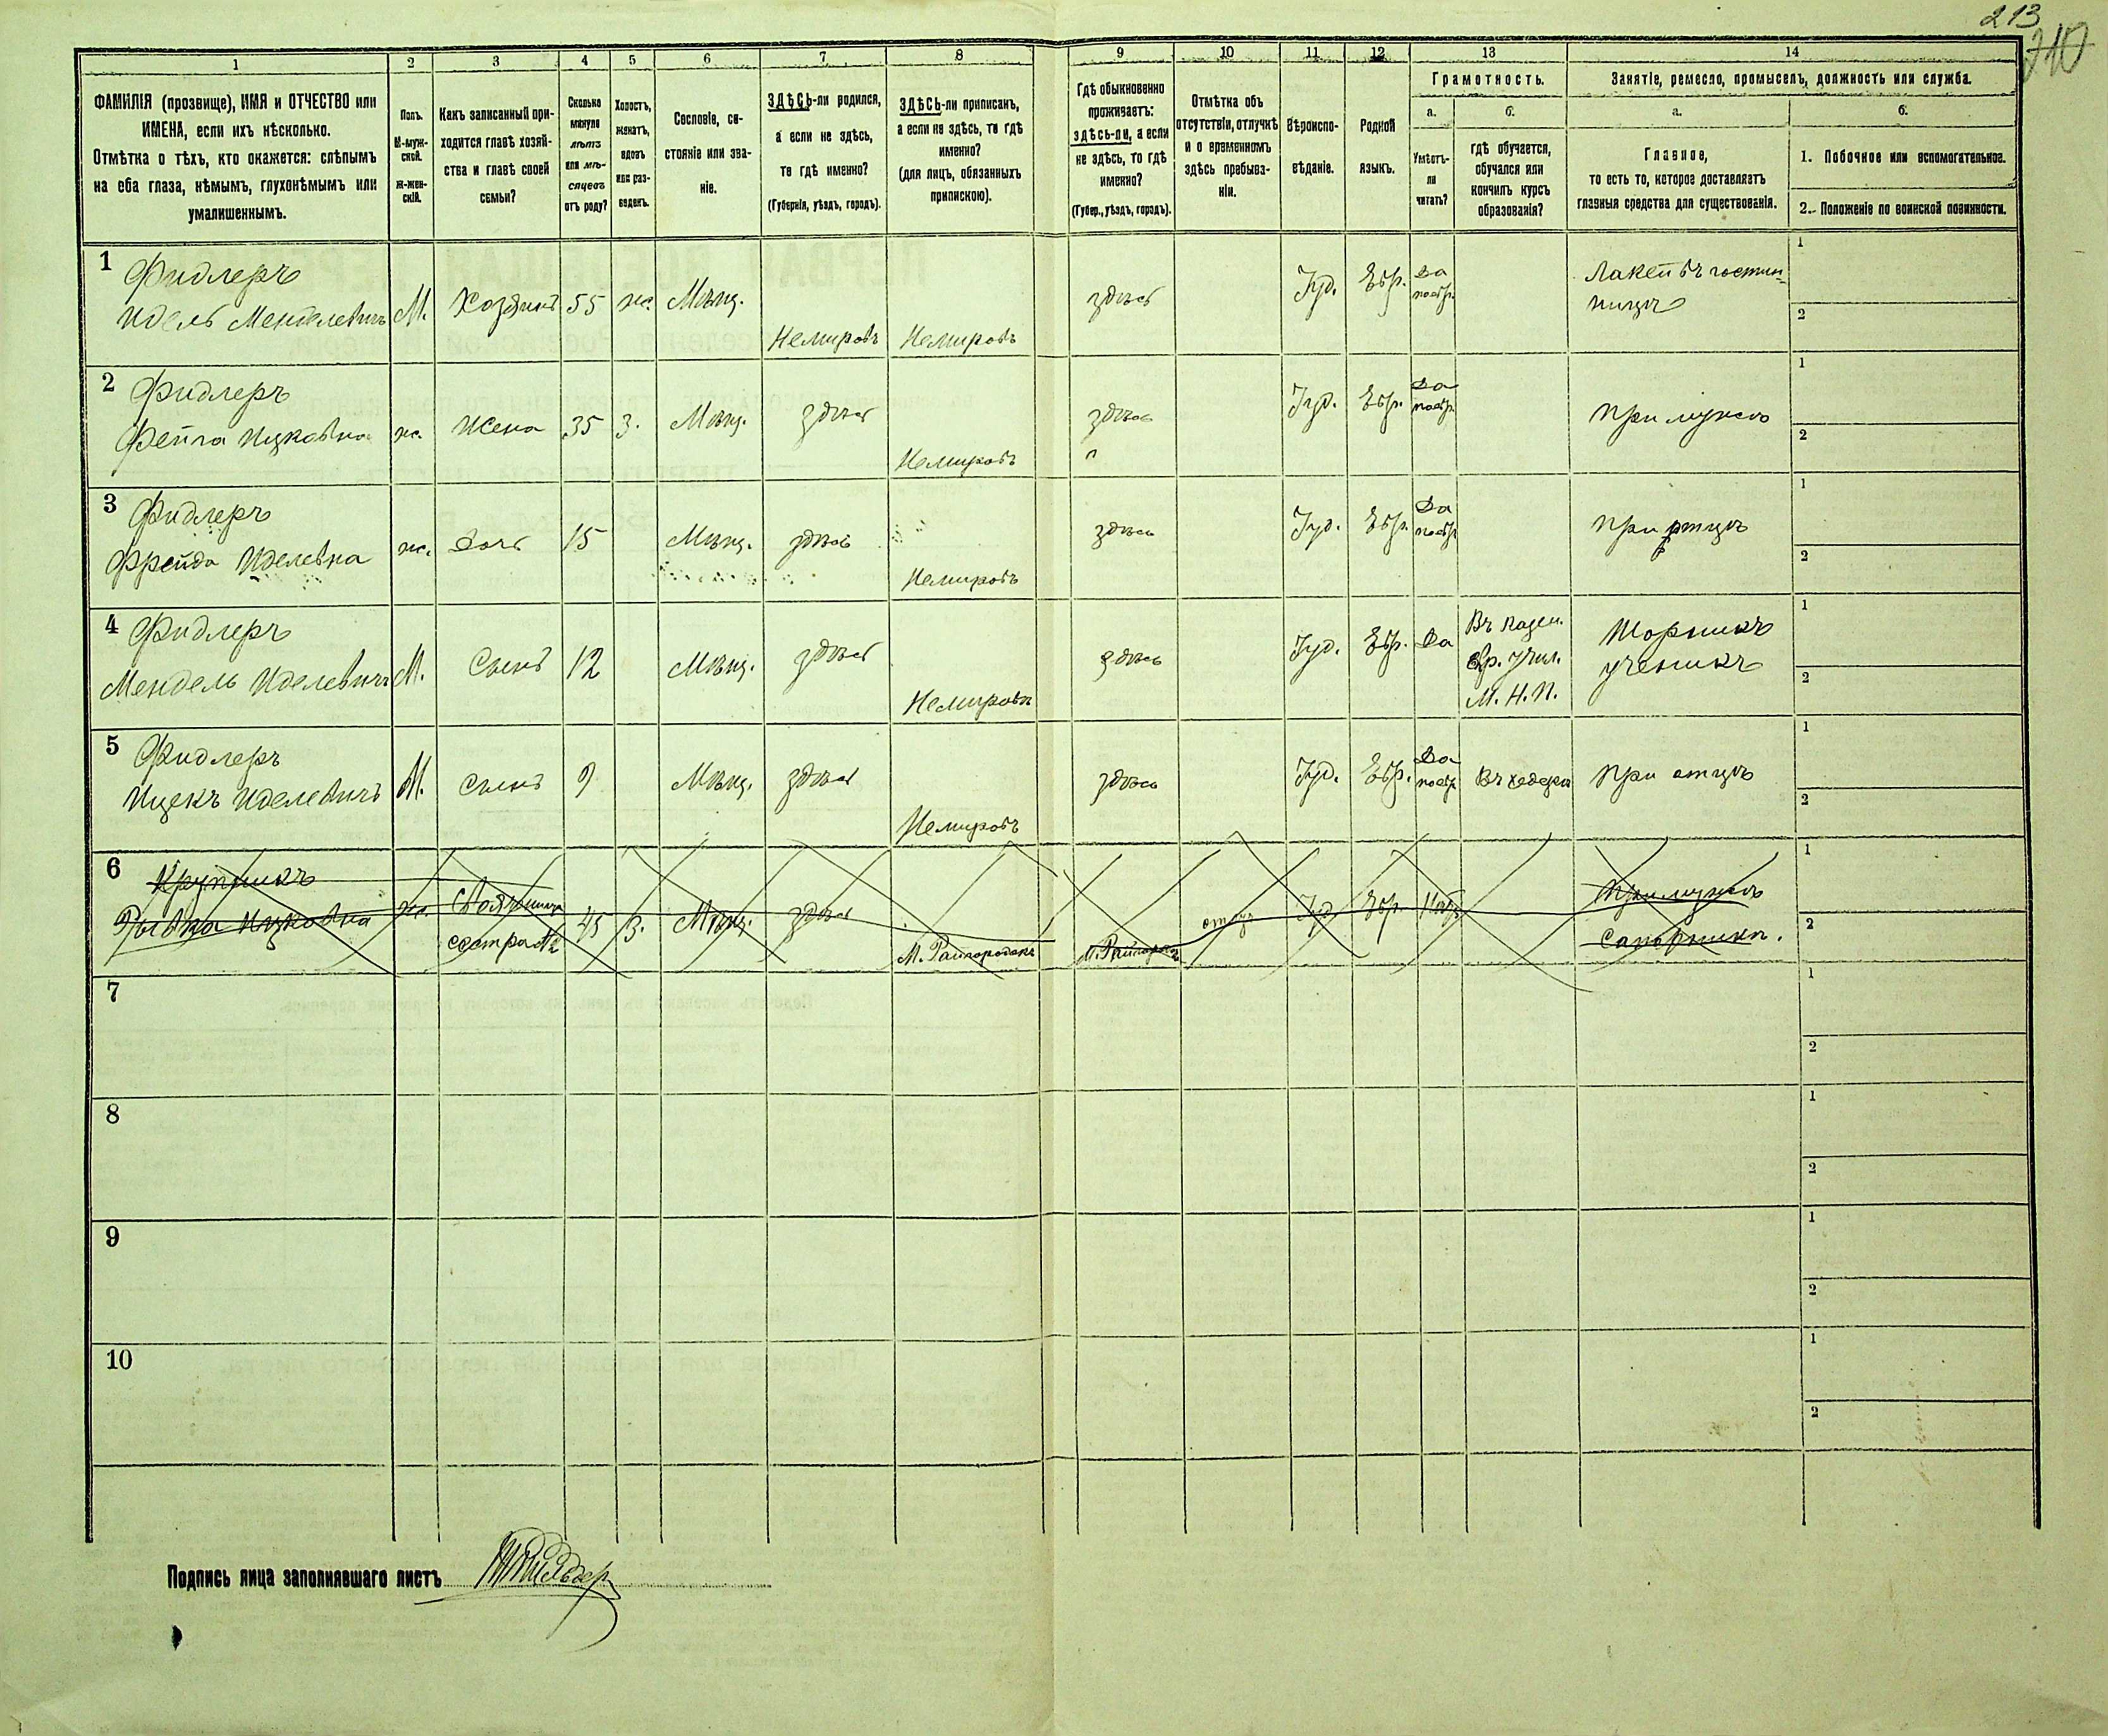 213
210
1 2 3 4 5 6 7 8 9 10 11 12 13 14
ФАМИЛІЯ (прозвище), ИМЯ и ОТЧЕСТВО или
ИМЕНА, если ихъ нѣсколько.
Отмѣтка о тѣхъ, кто окажется: слѣпымъ
на оба глаза, нѣмымъ, глухонѣмымъ или
умалишеннымъ.
Полъ.
М-муж-
ской.
ж-жен-
скій.
Какъ записанный при-
ходится главѣ хозяй-
ства и главѣ своей
семьи?
Сколько
минуло
лѣтъ
или мѣ-
сяцевъ
отъ роду?
Холостъ,
женатъ,
вдовъ
или раз-
веденъ.
Сословіе, со-
стояніе или зва-
ніе.
ЗДѢСЬ-ли родился,
а если не здѣсь,
то гдѣ именно?
(Губернія, уѣздъ, городъ).
ЗДѢСЬ-ли приписанъ,
а если не здѣсь, то гдѣ
именно?
(для лицъ, обязанныхъ
припискою).
Гдѣ обыкновенно
проживаетъ:
здѣсь-ли, а если
не здѣсь, то гдѣ
именно?
(Губер., уѣздъ, городъ).
Отмѣтка объ
отсутствіи, отлучкѣ
и о временномъ
здѣсь пребыва-
ніи.
Вѣроиспо-
вѣданіе.
Родной
языкъ.
Грамотность.
а.
Умѣетъ-
ли
читать?
б.
гдѣ обучается,
обучался или
кончилъ курсъ
образованія?
Занятіе, ремесло, промыселъ, должность или служба.
а.
Главное,
то есть то, которое доставляетъ
главныя средства для существованія.
б.
1. Побочное или вспомогательное.
2. Положеніе по воинской повинности.
1 Фидлеръ
Идель Менделевичъ М. Хозяинъ 55 ж. Мѣщ. Немировъ Немировъ здѣсь Іуд. Евр. Да поевр. Лакей въ гостин-
ницѣ
1
2
2 Фидлеръ
Фейга Ицковна ж. Жена 35 З. Мѣщ. здѣсь Немировъ здѣсь Іуд. Евр. Да поевр. При мужѣ
1
2
3 Фидлеръ
Фрейда Иделевна ж. Дочь 15 Мѣщ. здѣсь Немировъ здѣсь Іуд. Евр. Да поевр. При отцѣ
1
2
4 Фидлеръ
Мендель Иделевичъ М. Сынъ 12 Мѣщ. здѣсь Немировъ здѣсь Іуд. Евр. Да Въ казен.
Евр. учил.
М. Н. П. Шорникъ
ученикъ
1
2
5 Фидлеръ
Ицекъ Иделевичъ М. Сынъ 9 Мѣщ. здѣсь Немировъ здѣсь Іуд. Евр. Да поевр. Въ хедерѣ При отцѣ
1
2
6 Крупникъ
Рывка Ицковна ж. Свояченица
сестра №2 45 З. Мѣщ. здѣсь М. Райгородокъ Іуд. Евр. При мужѣ
Сапожникъ.
1
2
7
1
2
8
1
2
9
1
2
10
1
2
Подпись лица заполнявшаго листъ